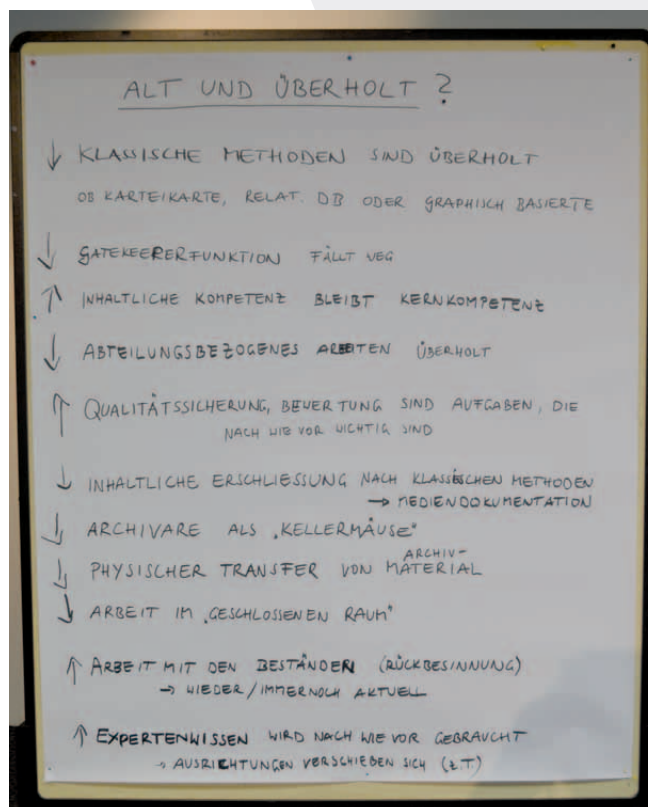 ALT UND ÜBERHOLT?
↓ KLASSISCHE METHODEN SIND ÜBERHOLT
OB KARTEIKARTE, RELAT. DB ODER GRAPHISCH BASIERTE
↓ GATEKEEPERFUNKTION FÄLLT WEG
↑ INHALTLICHE KOMPETENZ BLEIBT KERNKOMPETENZ
↓ ABTEILUNGSBEZOGENES ARBEITEN ÜBERHOLT
↑ QUALITÄTSSICHERUNG, BEWERTUNG SIND AUFGABEN, DIE
NACH WIE VOR WICHTIG SIND
↓ INHALTLICHE ERSCHLIESSUNG NACH KLASSISCHEN METHODEN
→ MEDIENDOKUMENTATION
↓ ARCHIVARE ALS „KELLERMÄUSE"
↓ PHYSISCHER TRANSFER VON ARCHIV-
MATERIAL
↓ ARBEIT IM „GESCHLOSSENEN RAUM"
↑ ARBEIT MIT DEN BESTÄNDEN (RÜCKBESINNUNG)
→ WIEDER/IMMERNOCH AKTUELL
↑ EXPERTENWISSEN WIRD NACH WIE VOR GEBRAUCHT
→ AUSRICHTUNGEN VERSCHIEBEN SICH (z.T)